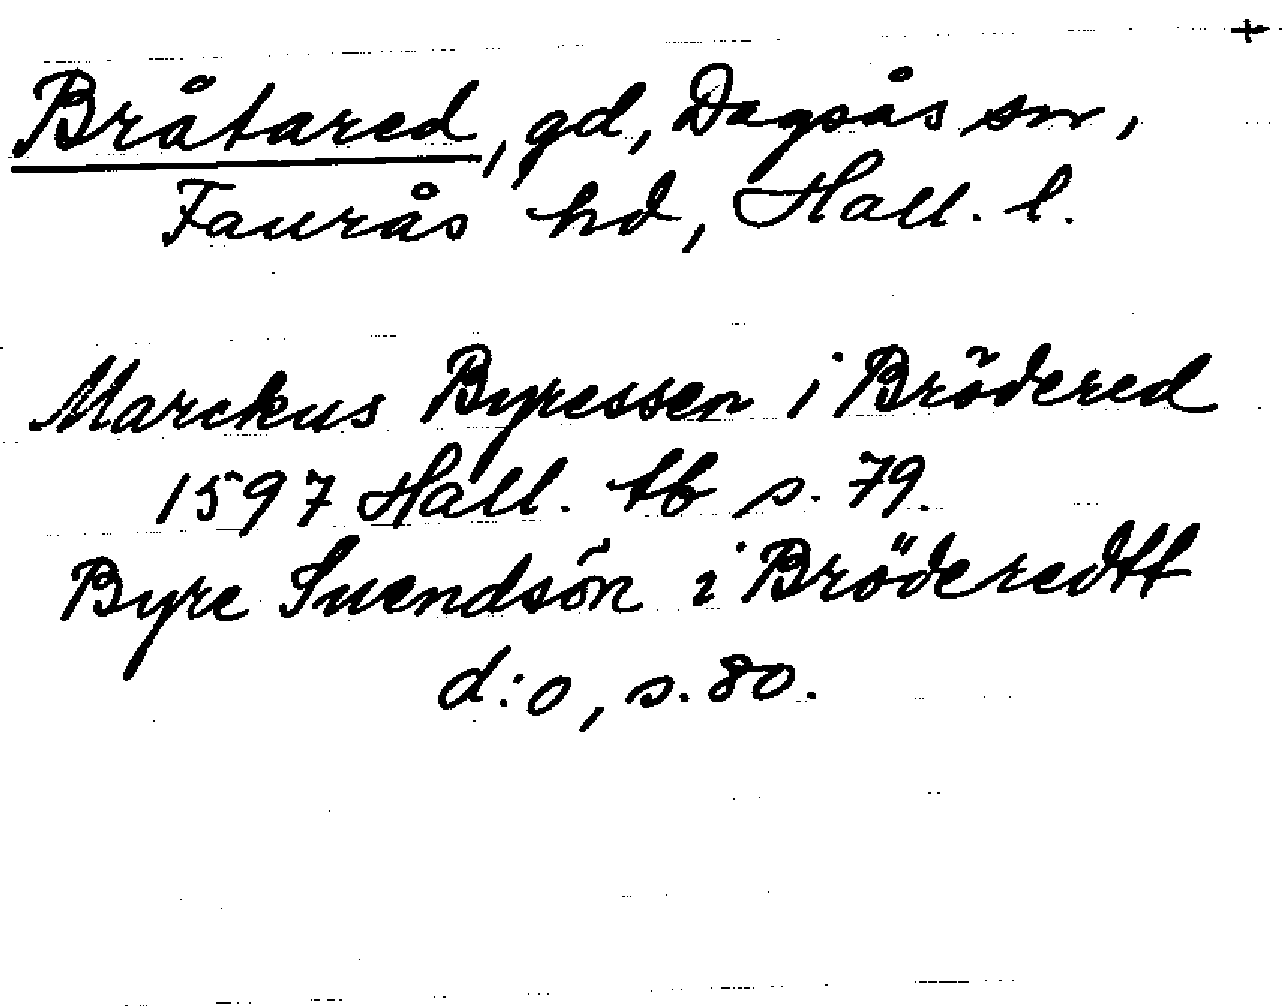 +
Bråtared, gd, Dagsås sn,
Faurås hd, Hall. l.
Marckus Byressen i Brödered
1597 Hall. tb s. 79.
Byre Suendsön i Bröderedtt
d:o, s. 80.